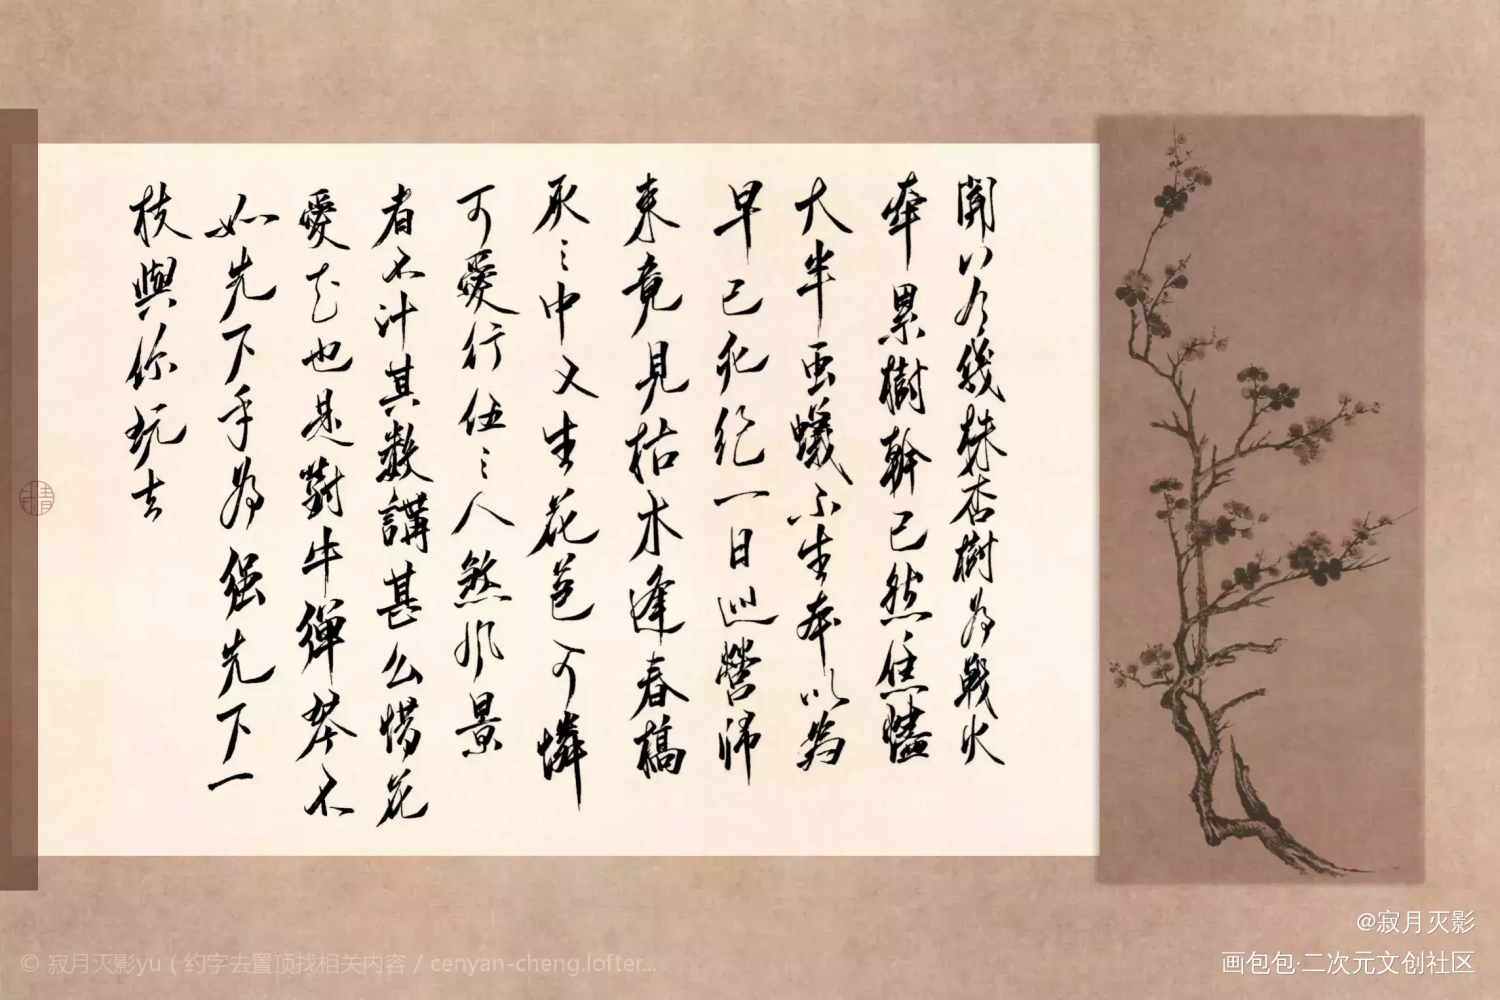 幾株杏樹為戰火
牽累樹幹已然焦燼
大半虫蟻不生本以為
早已死絕一日巡營歸
來竟見枯木逢春槁
灰之中又生花苞可憐
可愛行伍之人煞風景
者不計其數講甚么惜花
愛花也是對牛彈琴不
如先下手為強先下一
枝與你玩去
@寂月灭影
画包包·二次元文创社区
© 寂月灭影yu（约字去置顶找相关内容 / cenyan-cheng.lofter...